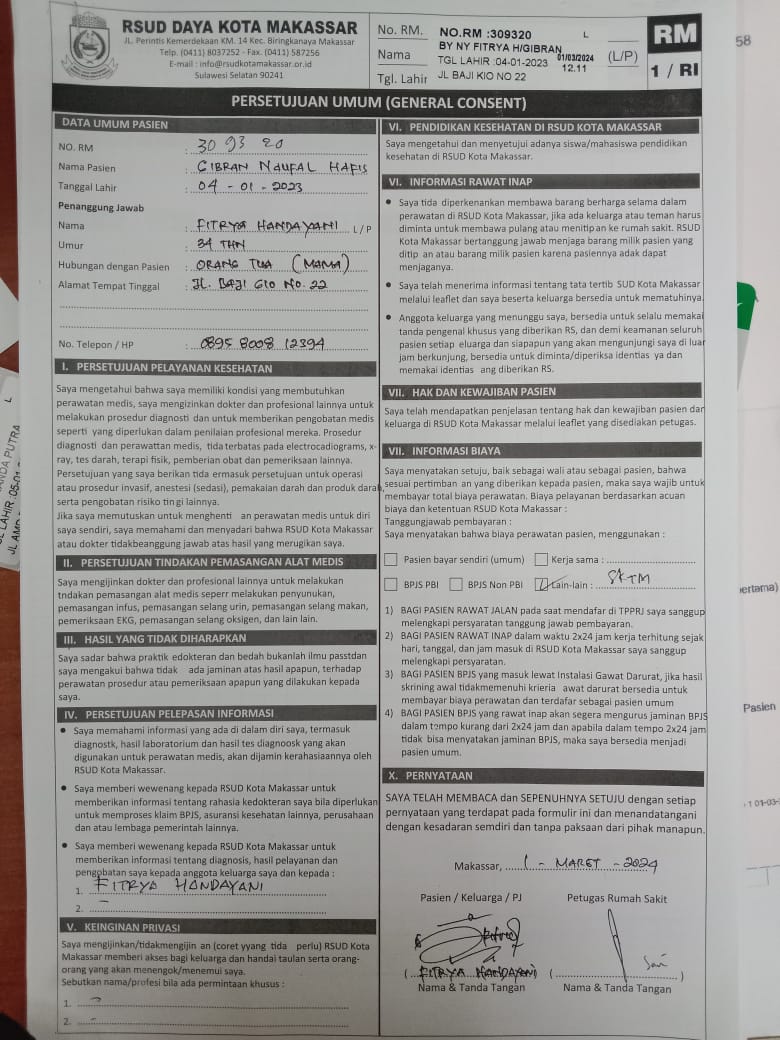 RSUD DAYA KOTA MAKASSAR
JL. Perintis Kemerdekaan KM. 14 Kec. Biringkanaya Makassar
Telp. (0411) 8037252 - Fax. (0411) 587256
E-mail : info@rsudkotamakassar.or.id
Sulawesi Selatan 90241
No. RM.
Nama
Tgl. Lahir
NO.RM :309320 L
BY NY FITRYA H/GIBRAN
TGL LAHIR :04-01-2023 01/03/2024
12.11
JL BAJI KIO NO 22
(L/P)
RM
1 / RI
PERSETUJUAN UMUM (GENERAL CONSENT)
DATA UMUM PASIEN
NO. RM : 30 93 20
Nama Pasien : GIBRAN NAUFAL HAFIS
Tanggal Lahir : 04 - 01 - 2023
Penanggung Jawab
Nama : FITRYA HANDAYANI L / P
Umur : 34 THN
Hubungan dengan Pasien : ORANG TUA (MAMA)
Alamat Tempat Tinggal : JL. BAJI GIO NO. 22
No. Telepon / HP : 0895 8008 12394
I. PERSETUJUAN PELAYANAN KESEHATAN
Saya mengetahui bahwa saya memiliki kondisi yang membutuhkan
perawatan medis, saya mengizinkan dokter dan profesional lainnya untuk
melakukan prosedur diagnosti dan untuk memberikan pengobatan medis
seperti yang diperlukan dalam penilaian profesional mereka. Prosedur
diagnosti dan perawattan medis, tida terbatas pada electrocardiograms, x-
ray, tes darah, terapi fisik, pemberian obat dan pemeriksaan lainnya.
Persetujuan yang saya berikan tida ermasuk persetujuan untuk operasi
atau prosedur invasif, anestesi (sedasi), pemakaian darah dan produk darah,
serta pengobatan risiko tingi lainnya.
Jika saya memutuskan untuk menghenti an perawatan medis untuk diri
saya sendiri, saya memahami dan menyadari bahwa RSUD Kota Makassar
atau dokter tidakbeanggung jawab atas hasil yang merugikan saya.
II. PERSETUJUAN TINDAKAN PEMASANGAN ALAT MEDIS
Saya mengijinkan dokter dan profesional lainnya untuk melakukan
tndakan pemasangan alat medis seperr melakukan penyunukan,
pemasangan infus, pemasangan selang urin, pemasangan selang makan,
pemeriksaan EKG, pemasangan selang oksigen, dan lain lain.
III. HASIL YANG TIDAK DIHARAPKAN
Saya sadar bahwa praktik edokteran dan bedah bukanlah ilmu passtdan
saya mengakui bahwa tidak ada jaminan atas hasil apapun, terhadap
perawatan prosedur atau pemeriksaan apapun yang dilakukan kepada
saya.
IV. PERSETUJUAN PELEPASAN INFORMASI
• Saya memahami informasi yang ada di dalam diri saya, termasuk
diagnostk, hasil laboratorium dan hasil tes diagnoosk yang akan
digunakan untuk perawatan medis, akan dijamin kerahasiaannya oleh
RSUD Kota Makassar.
• Saya memberi wewenang kepada RSUD Kota Makassar untuk
memberikan informasi tentang rahasia kedokteran saya bila diperlukan
untuk memproses klaim BPJS, asuransi kesehatan lainnya, perusahaan
dan atau lembaga pemerintah lainnya.
• Saya memberi wewenang kepada RSUD Kota Makassar untuk
memberikan informasi tentang diagnosis, hasil pelayanan dan
pengobatan saya kepada anggota keluarga saya dan kepada :
1. FITRYA HANDAYANI
2. -
V. KEINGINAN PRIVASI
Saya mengijinkan/tidakmengijin an (coret yyang tida perlu) RSUD Kota
Makassar memberi akses bagi keluarga dan handai taulan serta orang-
orang yang akan menengok/menemui saya.
Sebutkan nama/profesi bila ada permintaan khusus :
1. -
2. -
VI. PENDIDIKAN KESEHATAN DI RSUD KOTA MAKASSAR
Saya mengetahui dan menyetujui adanya siswa/mahasiswa pendidikan
kesehatan di RSUD Kota Makassar.
VI. INFORMASI RAWAT INAP
• Saya tida diperkenankan membawa barang berharga selama dalam
perawatan di RSUD Kota Makassar, jika ada keluarga atau teman harus
diminta untuk membawa pulang atau menitip an ke rumah sakit. RSUD
Kota Makassar bertanggung jawab menjaga barang milik pasien yang
ditip an atau barang milik pasien karena pasiennya adak dapat
menjaganya.
• Saya telah menerima informasi tentang tata tertib SUD Kota Makassar
melalui leaflet dan saya beserta keluarga bersedia untuk mematuhinya.
• Anggota keluarga yang menunggu saya, bersedia untuk selalu memakai
tanda pengenal khusus yang diberikan RS, dan demi keamanan seluruh
pasien setiap eluarga dan siapapun yang akan mengunjungi saya di luar
jam berkunjung, bersedia untuk diminta/diperiksa identias ya dan
memakai identias ang diberikan RS.
VII. HAK DAN KEWAJIBAN PASIEN
Saya telah mendapatkan penjelasan tentang hak dan kewajiban pasien dan
keluarga di RSUD Kota Makassar melalui leaflet yang disediakan petugas.
VII. INFORMASI BIAYA
Saya menyatakan setuju, baik sebagai wali atau sebagai pasien, bahwa
sesuai pertimban an yang diberikan kepada pasien, maka saya wajib untuk
membayar total biaya perawatan. Biaya pelayanan berdasarkan acuan
biaya dan ketentuan RSUD Kota Makassar :
Tanggungjawab pembayaran :
Saya menyatakan bahwa biaya perawatan pasien, menggunakan :
Pasien bayar sendiri (umum) Kerja sama :
BPJS PBI BPJS Non PBI Lain-lain : SKTM
1) BAGI PASIEN RAWAT JALAN pada saat mendafar di TPPRJ saya sanggup
melengkapi persyaratan tanggung jawab pembayaran.
2) BAGI PASIEN RAWAT INAP dalam waktu 2x24 jam kerja terhitung sejak
hari, tanggal, dan jam masuk di RSUD Kota Makassar saya sanggup
melengkapi persyaratan.
3) BAGI PASIEN BPJS yang masuk lewat Instalasi Gawat Darurat, jika hasil
skrining awal tidakmemenuhi krieria awat darurat bersedia untuk
membayar biaya perawatan dan terdafar sebagai pasien umum
4) BAGI PASIEN BPJS yang rawat inap akan segera mengurus jaminan BPJS
dalam tempo kurang dari 2x24 jam dan apabila dalam tempo 2x24 jam
tidak bisa menyatakan jaminan BPJS, maka saya bersedia menjadi
pasien umum.
X. PERNYATAAN
SAYA TELAH MEMBACA dan SEPENUHNYA SETUJU dengan setiap
pernyataan yang terdapat pada formulir ini dan menandatangani
dengan kesadaran semdiri dan tanpa paksaan dari pihak manapun.
Makassar, 1 - MARET - 2024
Pasien / Keluarga / PJ
Petugas Rumah Sakit
(FITRYA HANDAYANI)
Nama & Tanda Tangan
Nama & Tanda Tangan
58
ertama)
Pasien